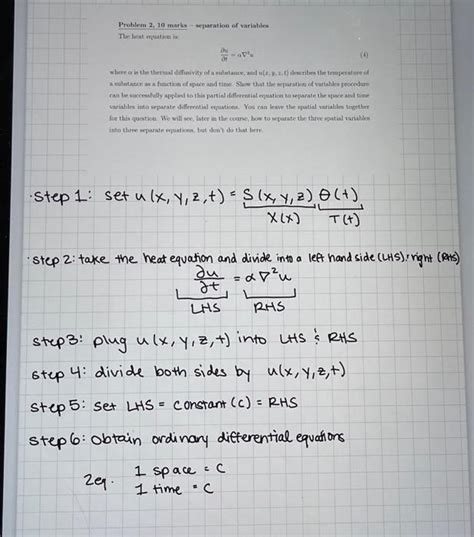 Problem 2, 10 marks – separation of variables
The heat equation is:
∂u/∂t = α∇²u (4)
where α is the thermal diffusivity of a substance, and u(x, y, z, t) describes the temperature of
a substance as a function of space and time. Show that the separation of variables procedure
can be successfully applied to this partial differential equation to separate the space and time
variables into separate differential equations. You can leave the spatial variables together
for this question. We will see, later in the course, how to separate the three spatial variables
into three separate equations, but don't do that here.
·Step 1: set u(x, y, z, t) = S(x, y, z) Θ(t)
X(x) T(t)
·Step 2: take the heat equation and divide into a left hand side (LHS) & right (RHS)
∂u/∂t = α∇²u
LHS RHS
step3: plug u(x, y, z, t) into LHS & RHS
step 4: divide both sides by u(x, y, z, t)
step 5: set LHS = constant (c) = RHS
step 6: obtain ordinary differential equations
2eq. 1 space = C
1 time = C